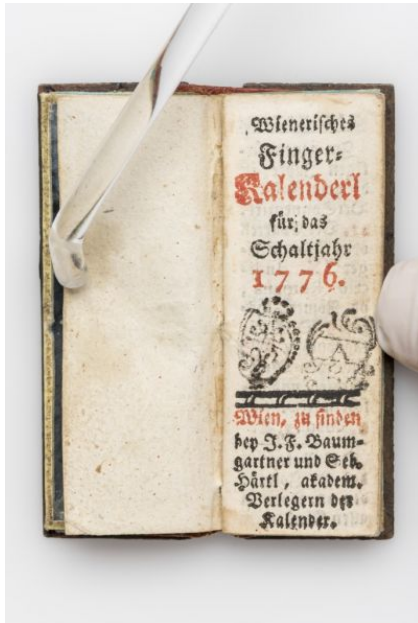 Wienerisches
Finger-
Kalenderl
für das
Schaltjahr
1776.
Wien, zu finden
bey J. F. Baum-
gartner und Seb.
Härtl, akadem.
Verlegern der
Kalender.